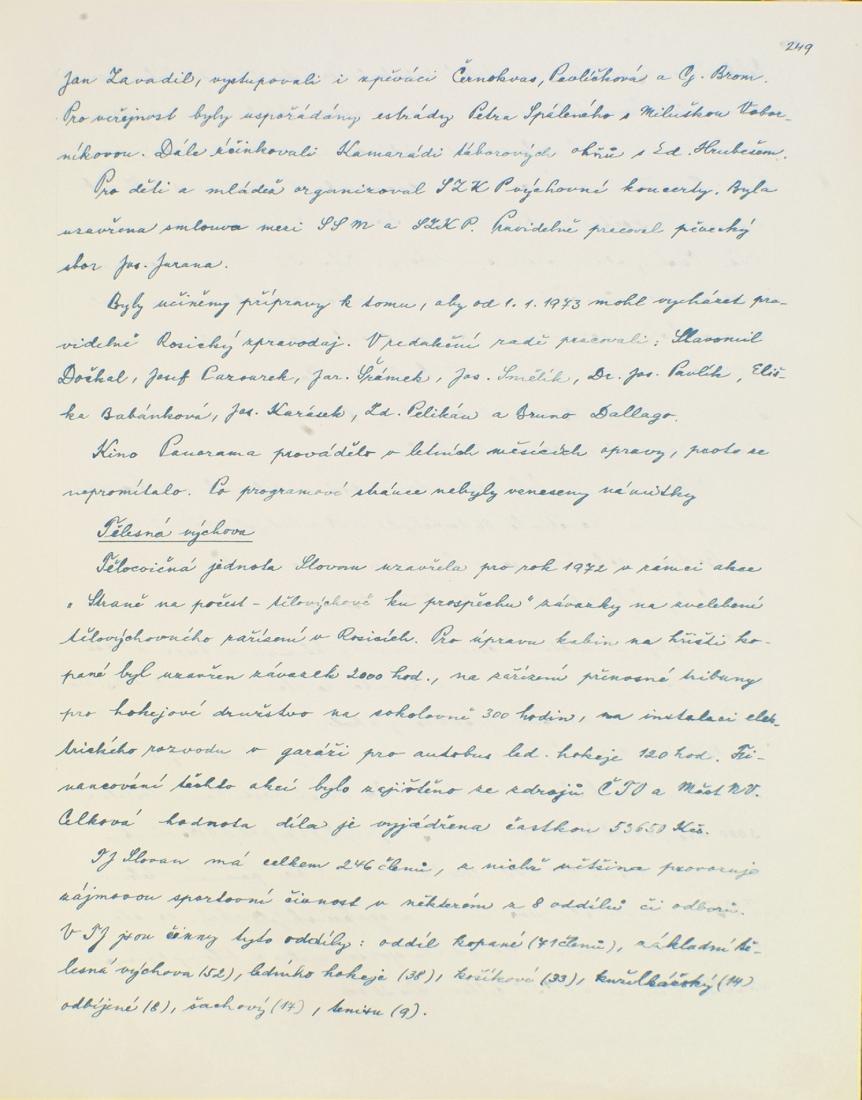 249
Jan Zavadil, vystupovali i zpěváci Černokvas, Pavlíčková a G. Brom.
Pro veřejnost byly uspořádány estrády Petra Spáleného s Miluškou Vobor-
níkovou. Dále účinkovali Kamarádi táborových ohňů s Ed. Hrubešem.
Pro děti a mládež organizoval SZK P výchovné koncerty. Byla
uzavřena smlouva mezi SSM a SZK P. Pravidelně pracoval pěvecký
sbor Jos. Jurana.
Byly učiněny přípravy k tomu, aby od 1. 1. 1973 mohl vycházet pra-
videlně Rosický zpravodaj. V redakční radě pracovali: Slavomil
Doškal, Josef Cazourek, Jar. Šrámek, Jos. Smělík, Dr. Jos. Pavlík, Eliš-
ka Babánková, Jos. Karásek, Zd. Pelikán a Bruno Dallago.
Kino Panorama provádělo v letních měsících opravy, proto se
nepromítalo. Po programové stránce nebyly vzneseny námitky
Tělesná výchova
Tělocvičná jednota Slovan uzavřela pro rok 1972 v rámci akce
"Straně na počest - tělovýchově ku prospěchu" závazky na zvelebení
tělovýchovného zařízení v Rosicích. Pro úpravu kabin na hřišti ko-
pané byl uzavřen závazek 2000 hod., na zařízení přenosné tribuny
pro hokejové družstvo na sokolovně 300 hodin, na instalaci elek-
trického rozvodu v garáži pro autobus led. hokeje 120 hod. Fi-
nancování těchto akcí bylo zajištěno ze zdrojů ČTO a Měst NV.
Celková hodnota díla je vyjádřena částkou 53650 Kčs.
TJ Slovan má celkem 246 členů, z nichž většina provozuje
zájmovou sportovní činnost v některém z 8 oddílů či odborů.
V TJ jsou činny tyto oddíly: oddíl kopané (71 členů), základní tě-
lesná výchova (52), ledního hokeje (38), košíkové (33), kuželkářský (14)
odbíjené (8), šachový (17), tenisu (9).